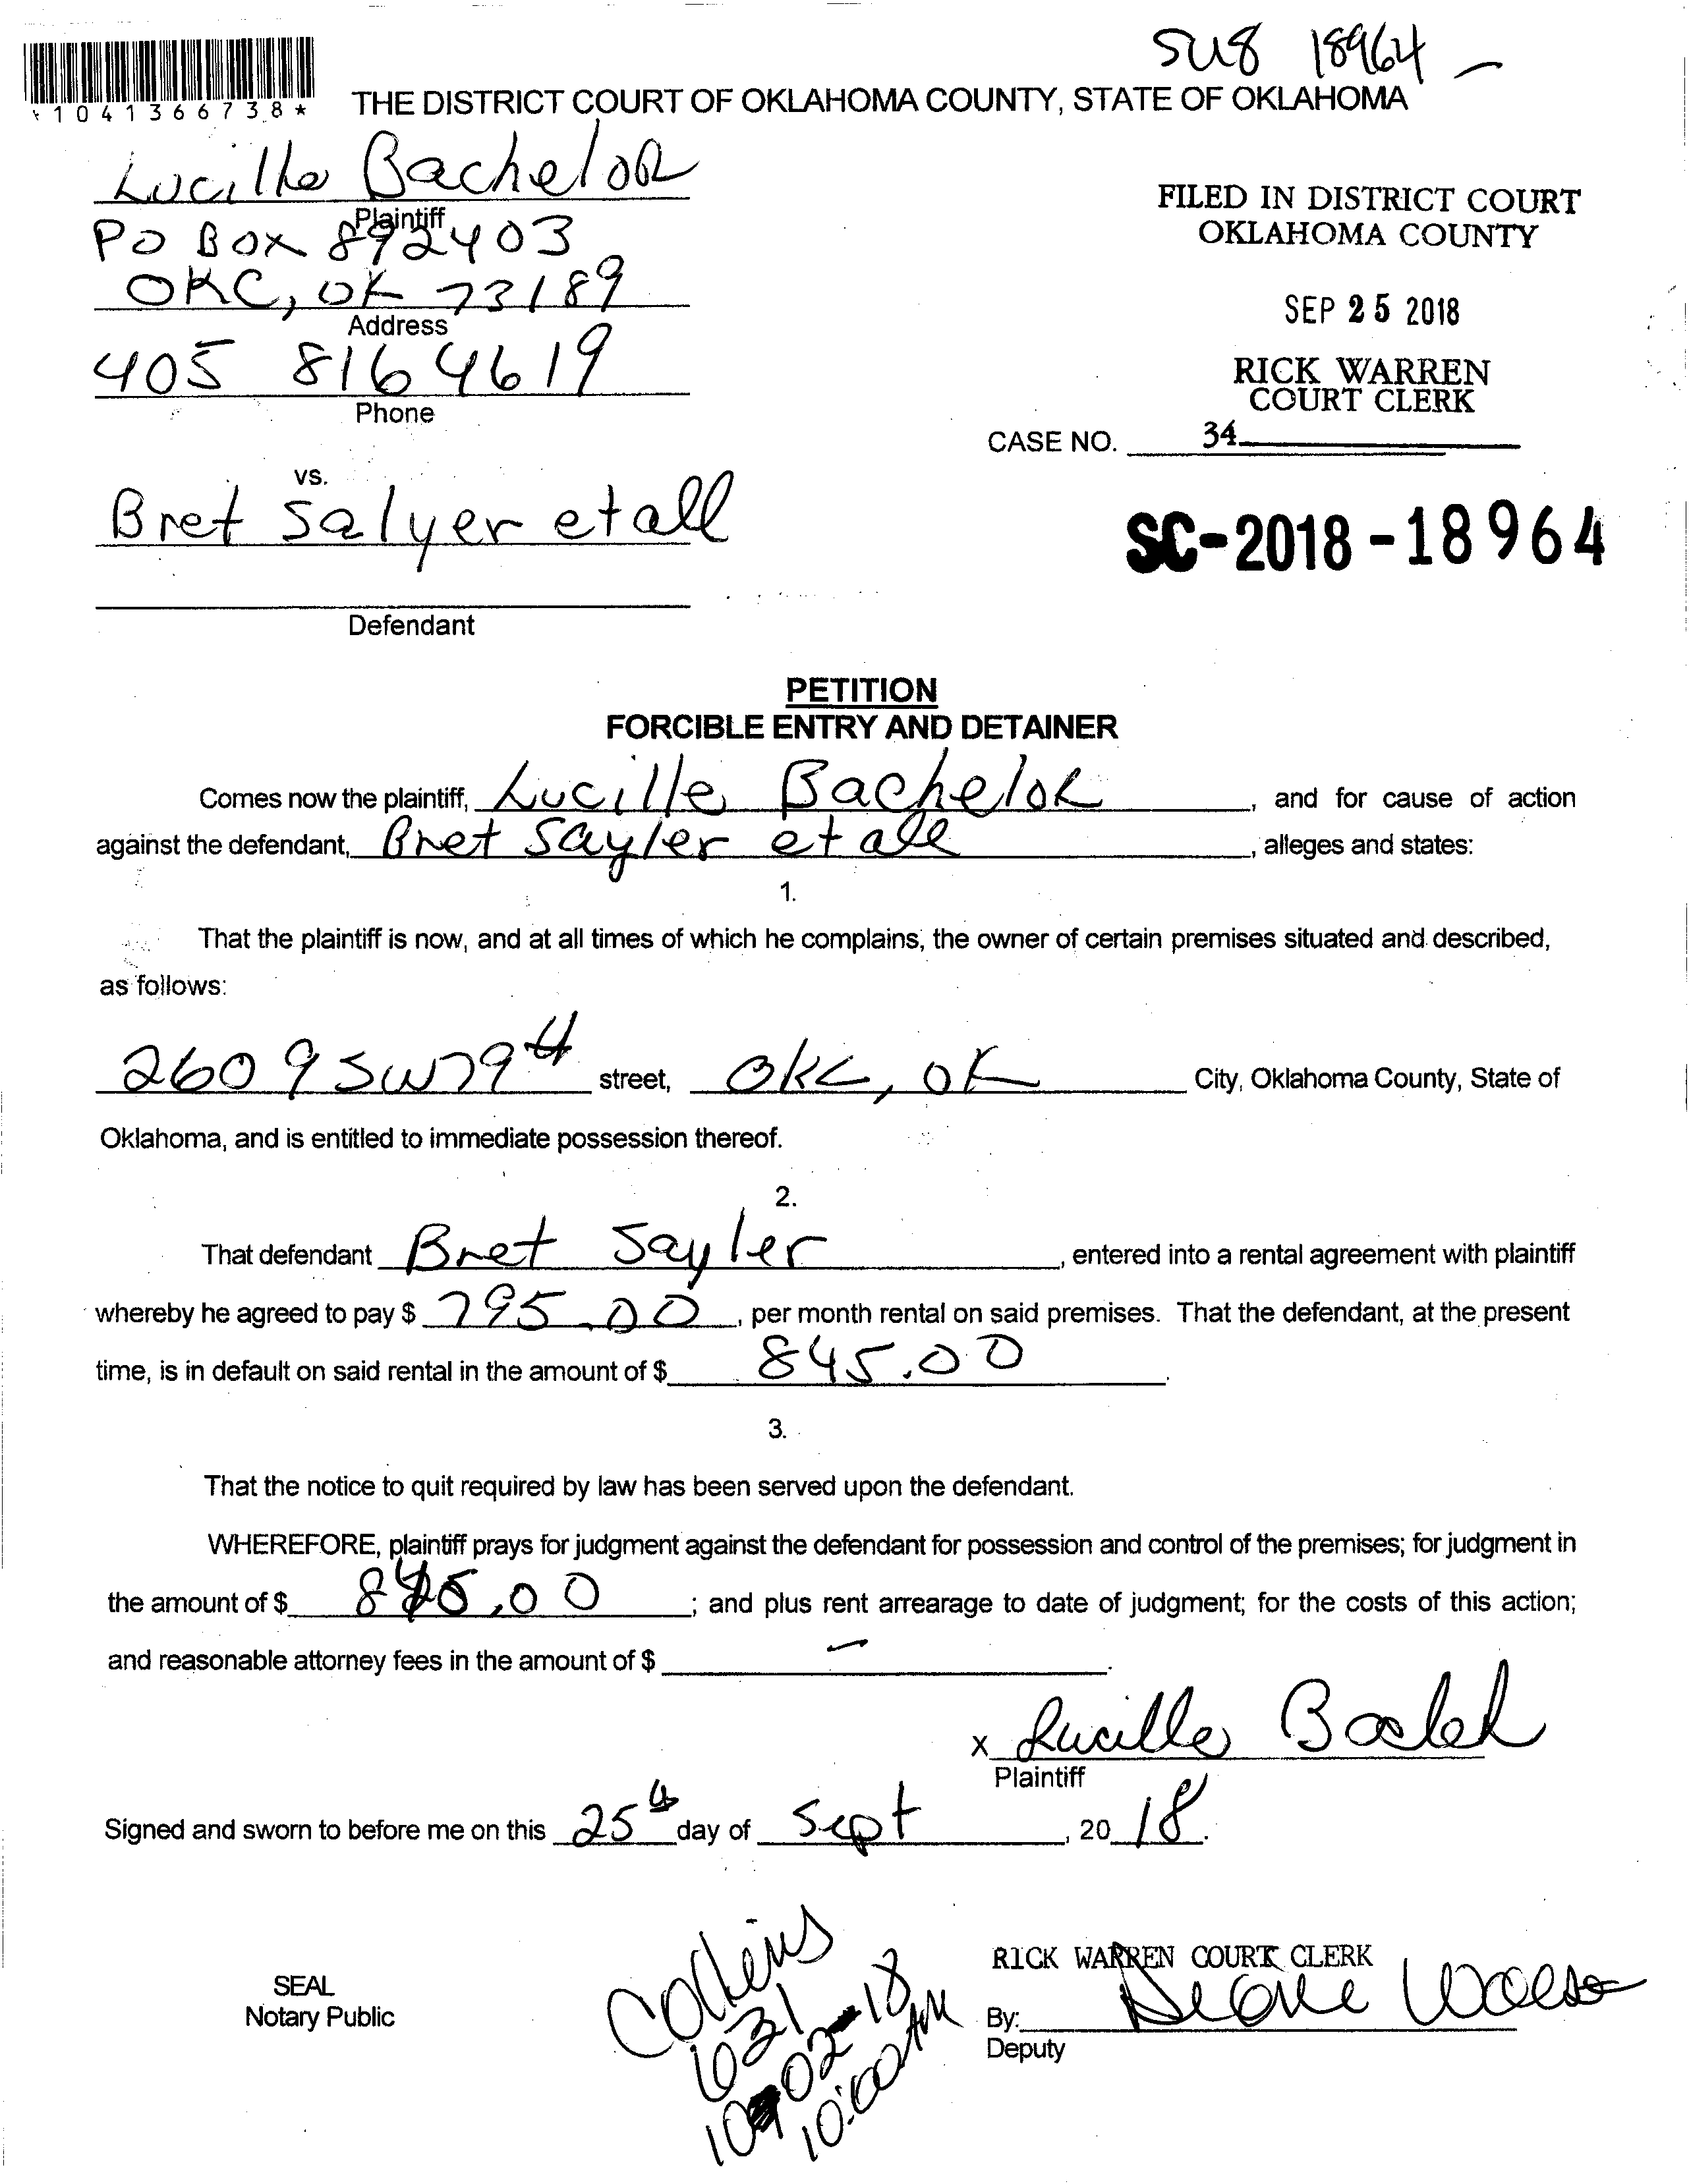 SU8 18964 -
*1041366738*
THE DISTRICT COURT OF OKLAHOMA COUNTY, STATE OF OKLAHOMA
Lucille Bachelor
Plaintiff
PO Box 892403
OKC, OK 73189
Address
405 816 4619
Phone
FILED IN DISTRICT COURT
OKLAHOMA COUNTY
SEP 25 2018
RICK WARREN
COURT CLERK
CASE NO. 34
vs.
Bret Salyer et all
SC-2018-18964
Defendant
PETITION
FORCIBLE ENTRY AND DETAINER
Comes now the plaintiff, Lucille Bachelor, and for cause of action
against the defendant, Bret Sayler et all, alleges and states:
1.
That the plaintiff is now, and at all times of which he complains, the owner of certain premises situated and described,
as follows:
2609 SW 79th street, OKC, OK City, Oklahoma County, State of
Oklahoma, and is entitled to immediate possession thereof.
2.
That defendant Bret Sayler, entered into a rental agreement with plaintiff
whereby he agreed to pay $ 795.00, per month rental on said premises. That the defendant, at the present
time, is in default on said rental in the amount of $ 845.00.
3.
That the notice to quit required by law has been served upon the defendant.
WHEREFORE, plaintiff prays for judgment against the defendant for possession and control of the premises; for judgment in
the amount of $ 845.00; and plus rent arrearage to date of judgment; for the costs of this action;
and reasonable attorney fees in the amount of $ -.
x Lucille
Plaintiff
Signed and sworn to before me on this 25th day of Sept, 2018.
SEAL
Notary Public
Collins
631
10-02-18
10:00 AM
RICK WARREN COURT CLERK
By:
Deputy